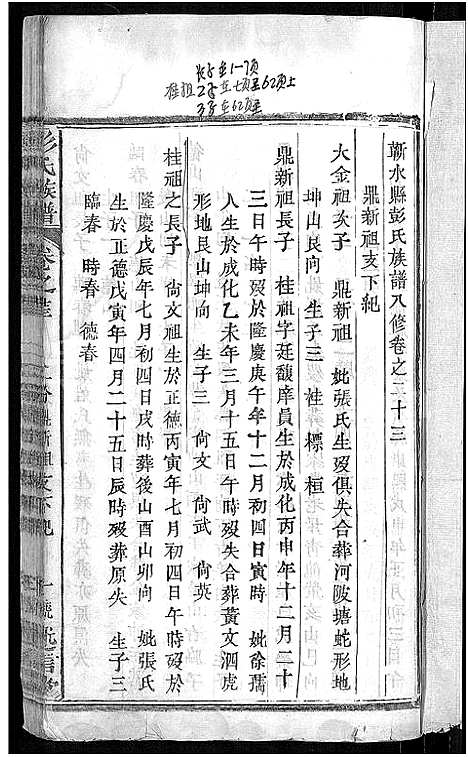 长房在1一7页
桂祖 2房在七页至62页上
3房在62页至
蘄水縣彭氏族譜八修卷之二十三
鼎新祖支下紀
大金祖次子 鼎新祖 妣張氏生歿俱失合葬河陂塘蛇形地
坤山艮向 生子三 桂 標 桓
鼎新祖長子 桂祖字廷馥庠員生於成化丙申年十二月二十
三日午時歿於隆慶庚午年十二月初四日寅時 妣徐孺
人生於成化乙未年三月十五日午時歿失合葬黃文泗虎
形地艮山坤向 生子三 尙文 尙武 尙英
桂祖之長子 尙文祖生於正德丙寅年七月初四日午時歿於
隆慶戊辰年七月初四日戌時葬後山酉山卯向 妣張氏
生於正德戊寅年四月二十五日辰時歿葬原失 生子三
臨春 時春 德春
彭氏族譜